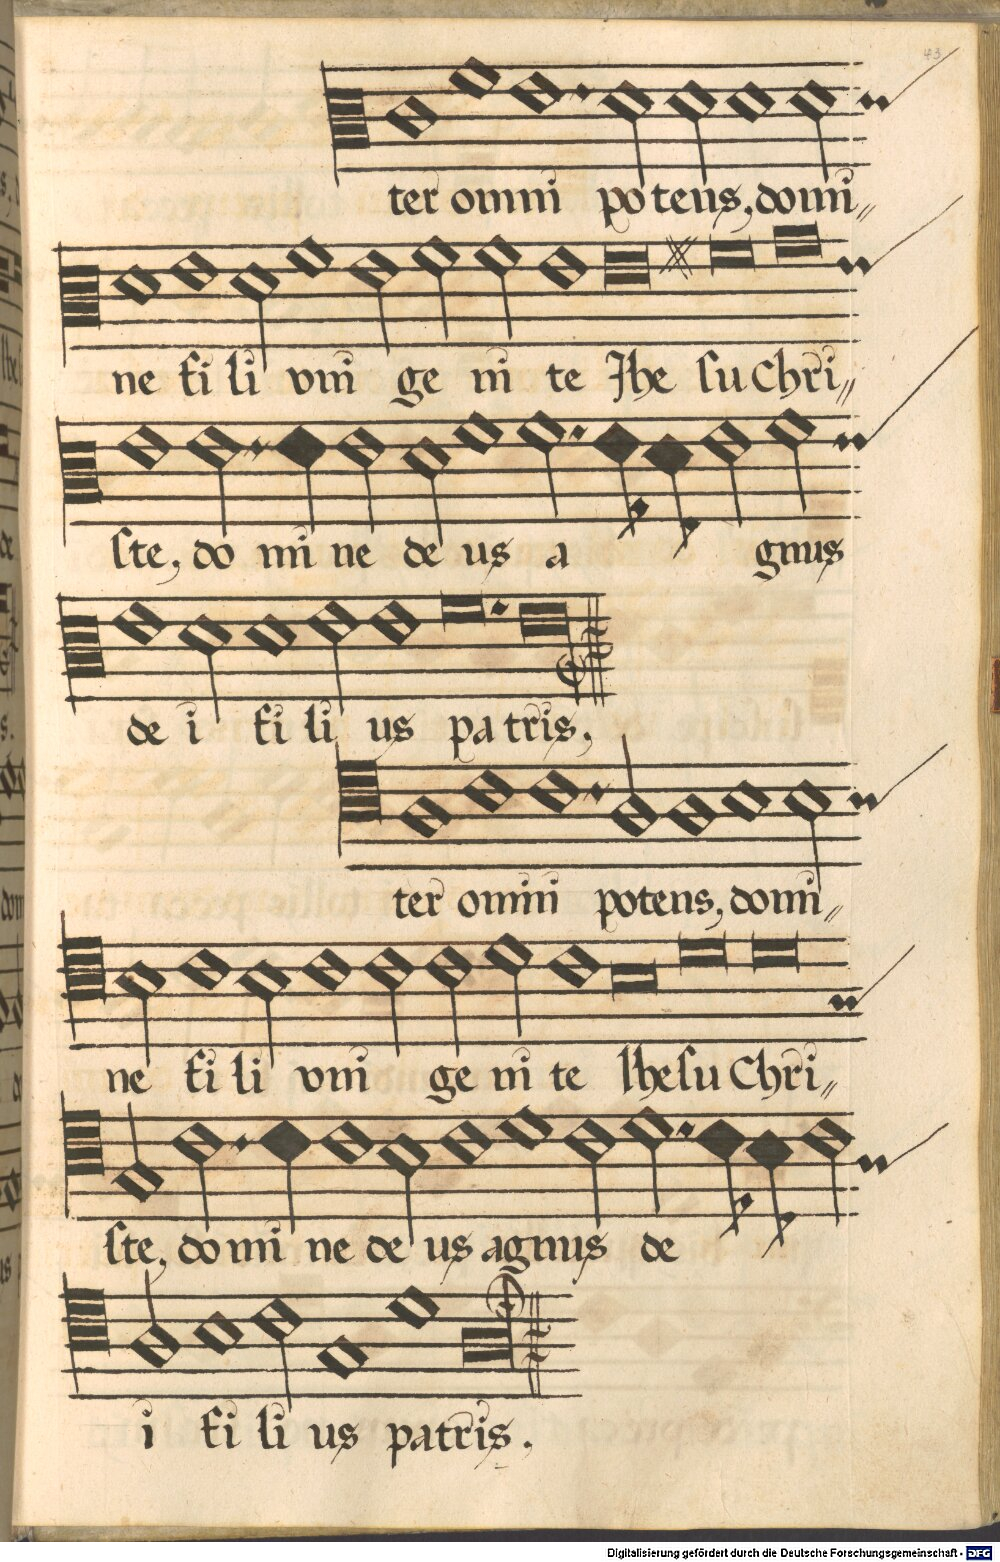 43
ter omni potens, domi„
ne fi li vni ge ni te Jhe su Chri„
ste, do mi ne de us a gnus
de i fi li us pa tris,
ter omni potens, domi„
ne fi li vni ge ni te Jhe su Chri„
ste, do mi ne de us agnus de
i fi li us patris.
Digitalisierung gefördert durch die Deutsche Forschungsgemeinschaft - DFG